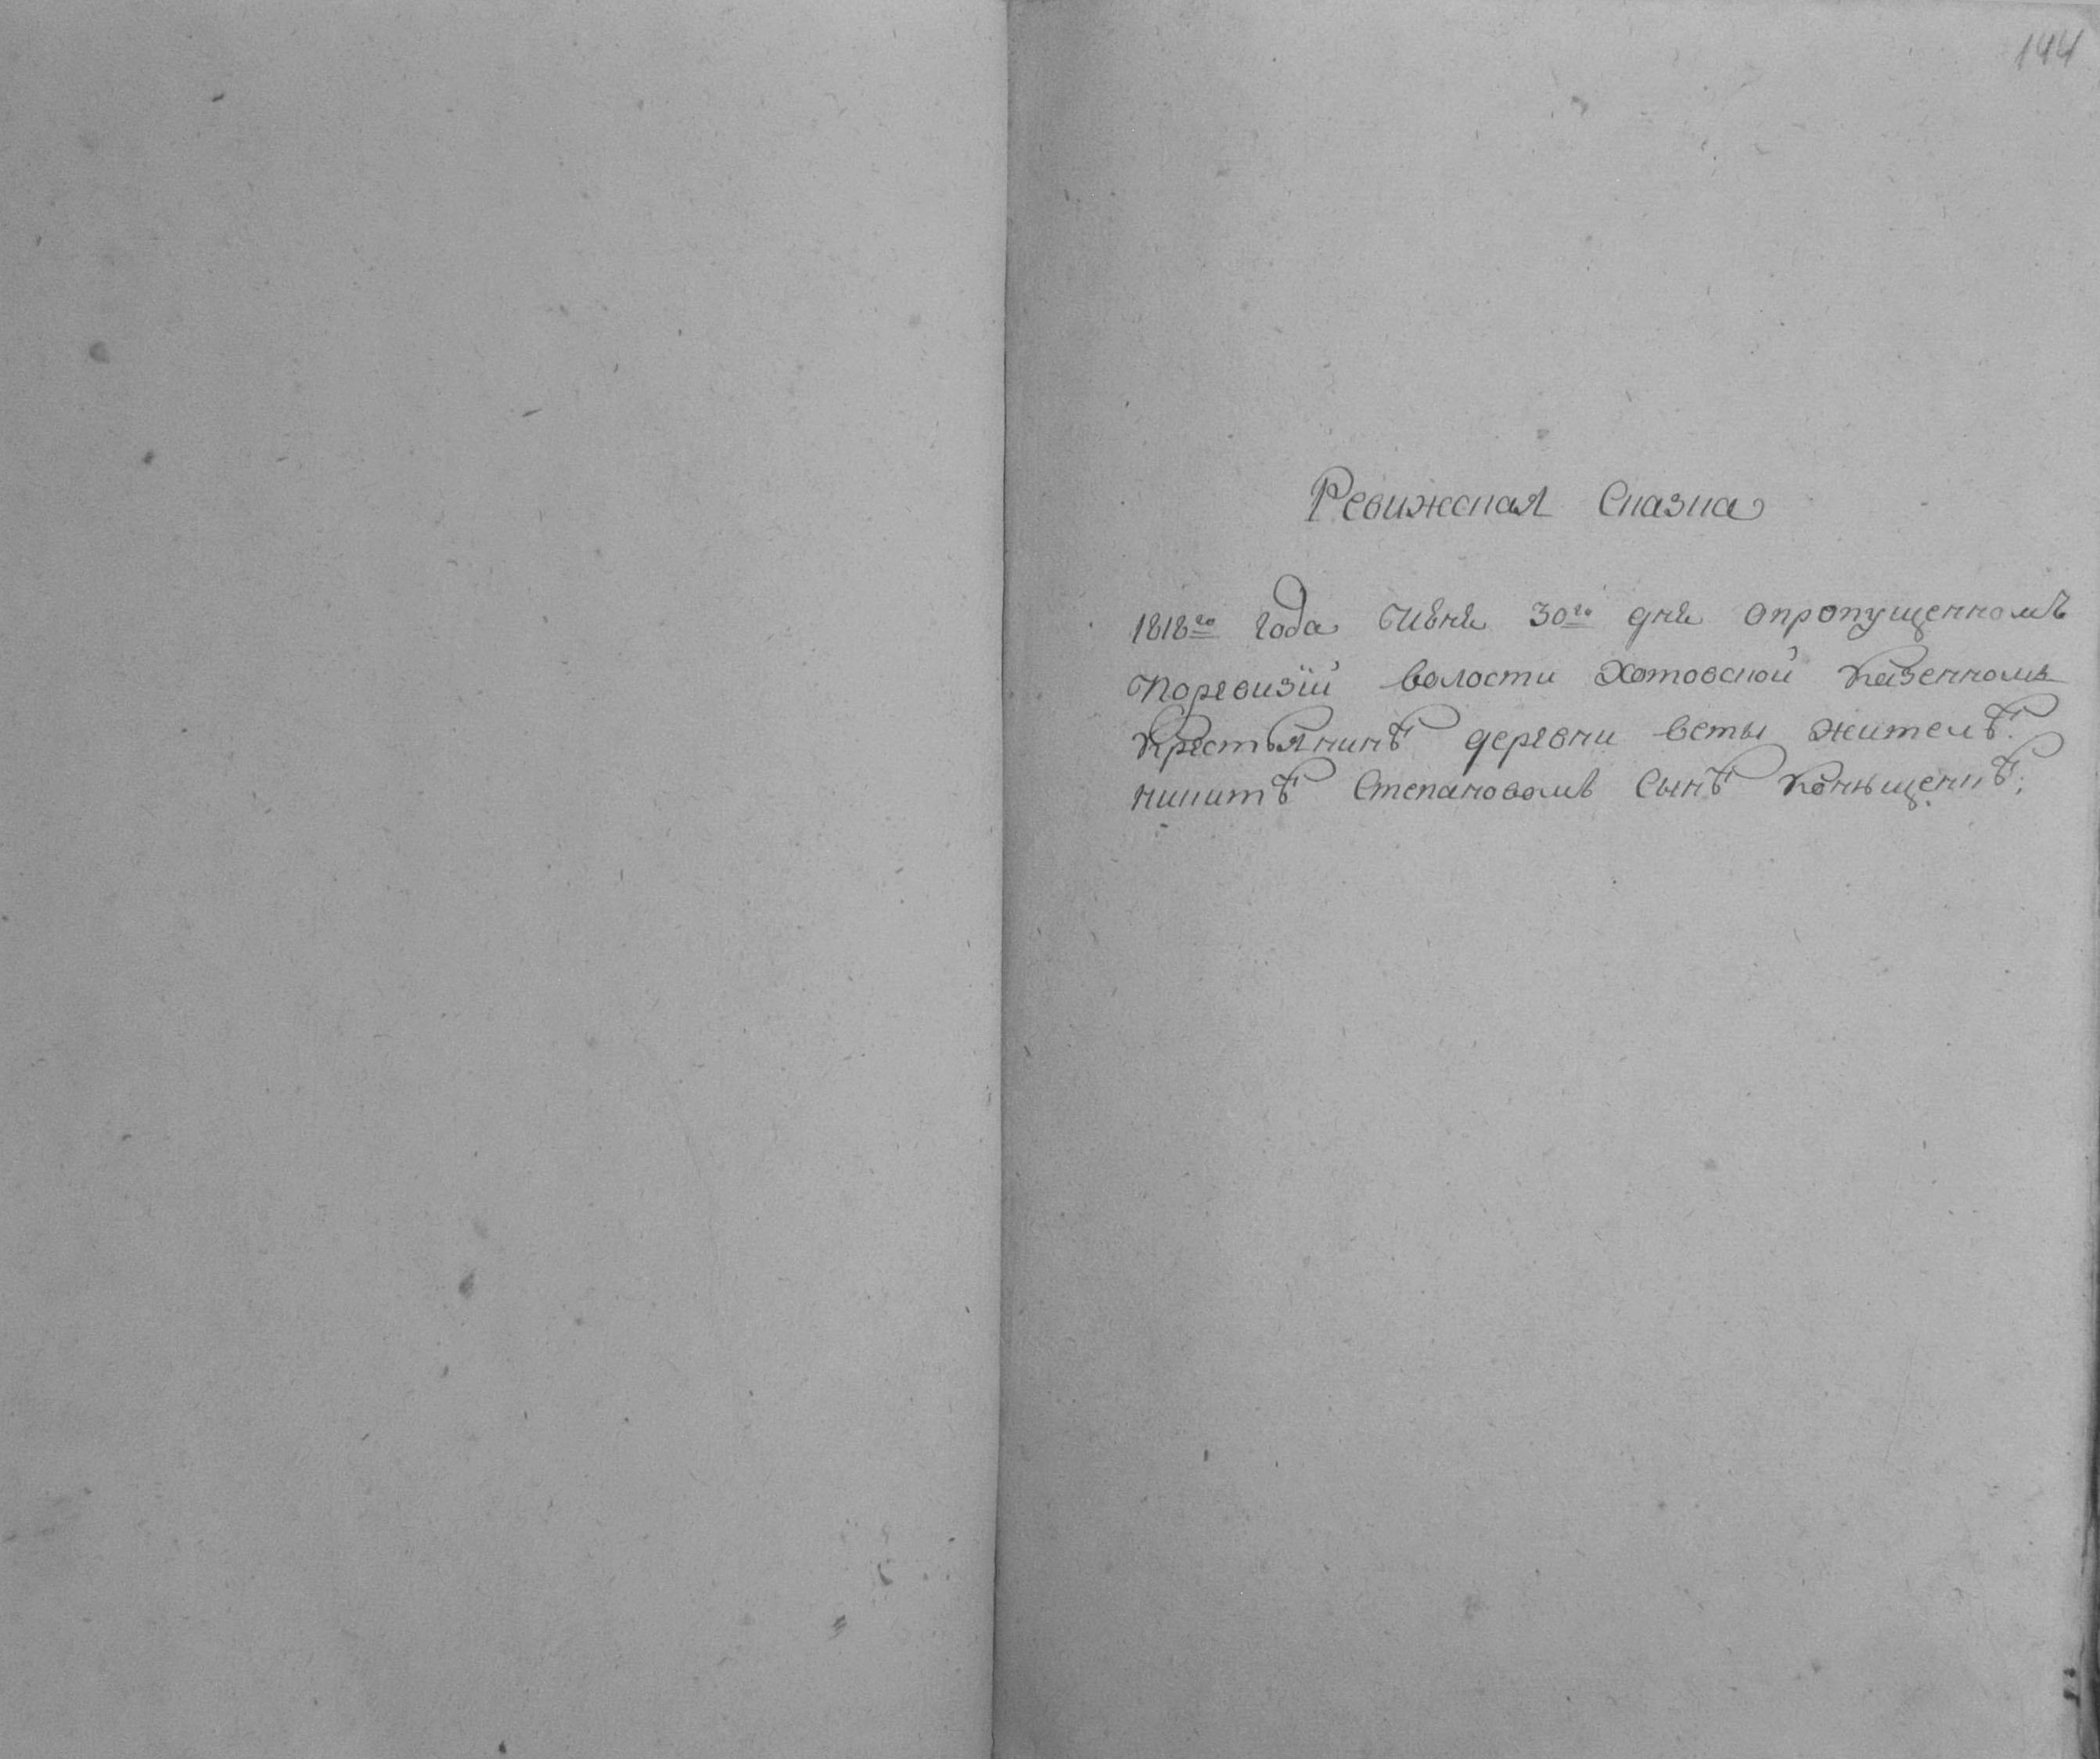 144
Ревижская Сказка
1818го года Июня 30го дня опропущенномъ
Поревизїи волости Хотовской Казенномъ
Крестьянинѣ деревни веты жителѣ:
никитѣ Степановомъ Сынѣ